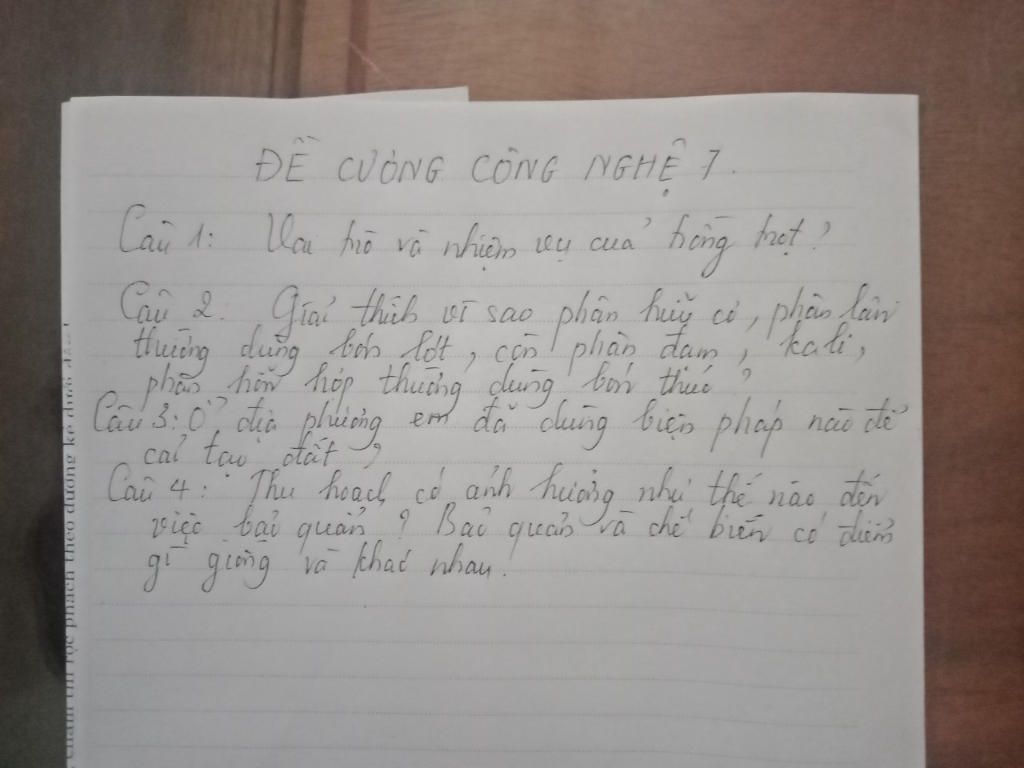 ĐỀ CƯƠNG CÔNG NGHỆ 7.
Câu 1: Vai trò và nhiệm vụ của trồng trọt?
Câu 2. Giải thích vì sao phân hữu cơ, phân lân
thường dùng bón lót, còn phân đạm, kali,
phân hỗn hợp thường dùng bón thúc?
Câu 3: Ở địa phương em đã dùng biện pháp nào để
cải tạo đất?
Câu 4: Thu hoạch có ảnh hưởng như thế nào đến
việc bảo quản? Bảo quản và chế biến có điểm
gì giống và khác nhau.
phách theo đường kẻ dưới đây!